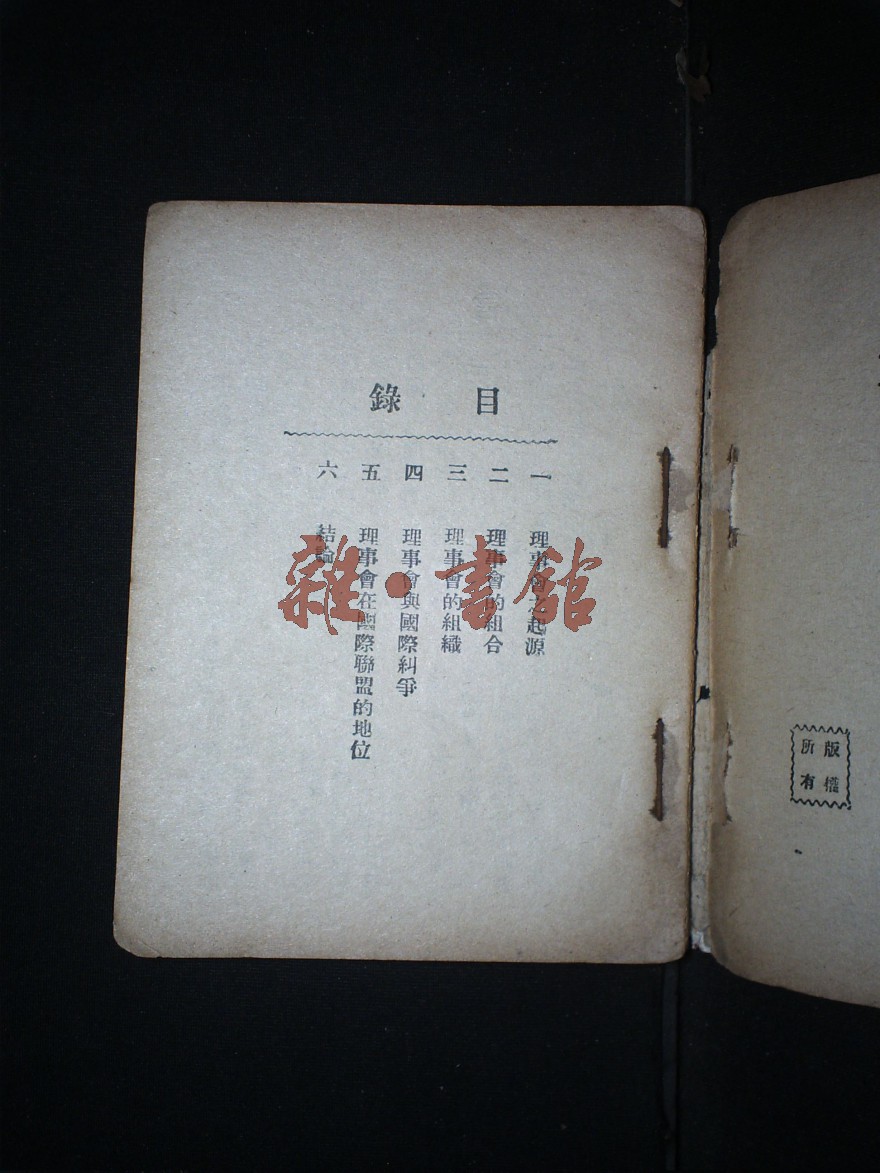 目錄
一 理事會之起源
二 理事會的組合
三 理事會的組織
四 理事會與國際糾爭
五 理事會在國際聯盟的地位
六 結論
雜·書館
版權
所有